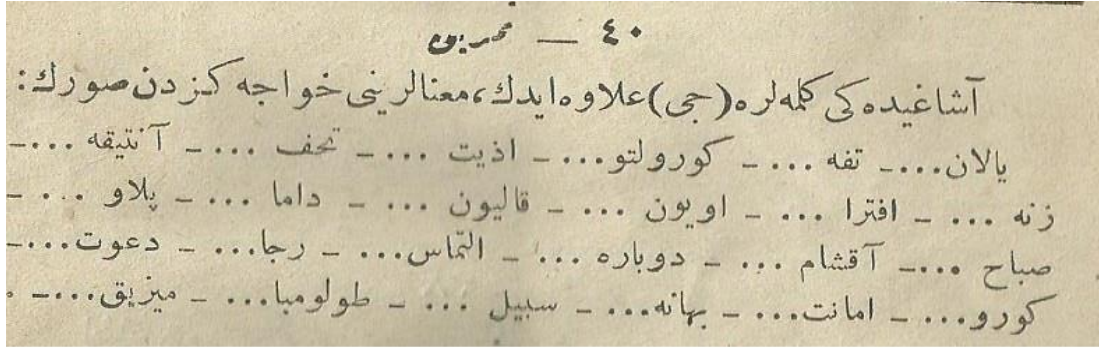 ٤٠ — تمرین
آشاغیده کی کلمه لره (جی) علاوه ایدك، معنالرینی خواجه کزدن صورك:
یالان...ـ تفه ... ـ کورولتو... ـ اذیت ... ـ تحف ... ـ آنتیقه ...ـ
زنه ... ـ افترا ... ـ اویون ... ـ قالیون ... ـ داما ... ـ پلاو ... ـ
صباح ...ـ آقشام ... ـ دوباره ... ـ التماس... ـ رجا... ـ دعوت...ـ
کورو... ـ امانت... ـ بهانه... ـ سبیل ... ـ طولومبا... ـ میزیق...ـ .